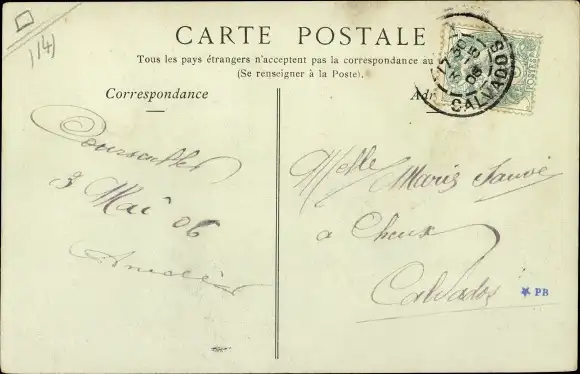 (14)
CARTE POSTALE
Tous les pays étrangers n'acceptent pas la correspondance au
(Se renseigner à la Poste).
Correspondance
Adr
CALVADOS
Courseulles
3 Mai 06
Amédée
Melle Marie Sauvé
a Cheux
Calvados
PB